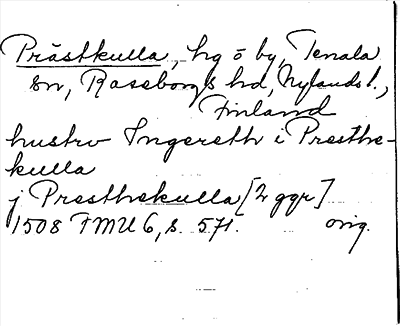 Prästkulla, hg o by, Tenala
sn, Raseborgs hd, Nylands l.,
Finland
hustro Ingereth i Presthe-
kulla
j Presthekulla [2 ggr]
1508 FMU 6, s. 571. orig.